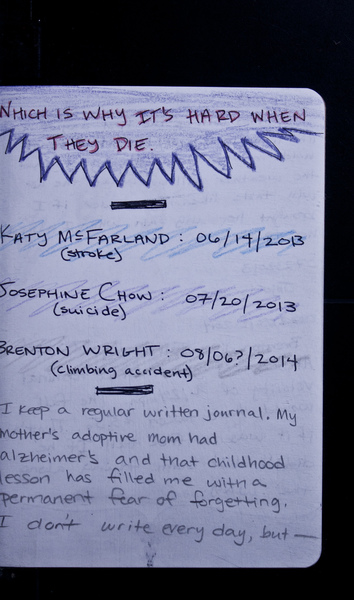 WHICH IS WHY IT'S HARD WHEN
THEY DIE.
KATY McFARLAND: 06/14/2013
(stroke)
JOSEPHINE CHOW: 07/20/2013
(suicide)
BRENTON WRIGHT: 08/06?/2014
(climbing accident)
I keep a regular written journal. My
mother's adoptive mom had
alzheimer's and that childhood
lesson has filled me with a
permanent fear of forgetting.
I don't write every day, but —